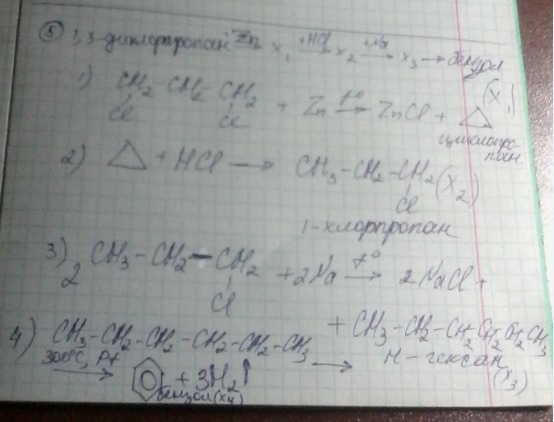 ⑤ 1,3-дихлорпропан Zn x₁ +HCl→ x₂ +Na→ x₃ → бензол
1) CH₂ - CH₂ - CH₂ + Zn t°→ ZnCl + △ (X₁)
Cl Cl циклопро-
пан
2) △ + HCl → CH₃ - CH₂ - CH₂ (X₂)
Cl
1-хлорпропан
3) 2 CH₃ - CH₂ - CH₂ + 2Na t°→ 2NaCl +
Cl
+ CH₃ - CH₂ - CH₂ CH₂ CH₂ CH₃
н-гексан
(X₃)
4) CH₃ - CH₂ - CH₂ - CH₂ - CH₂ - CH₃ →
300°C, Pt → + 3H₂↑
бензол (x₄)